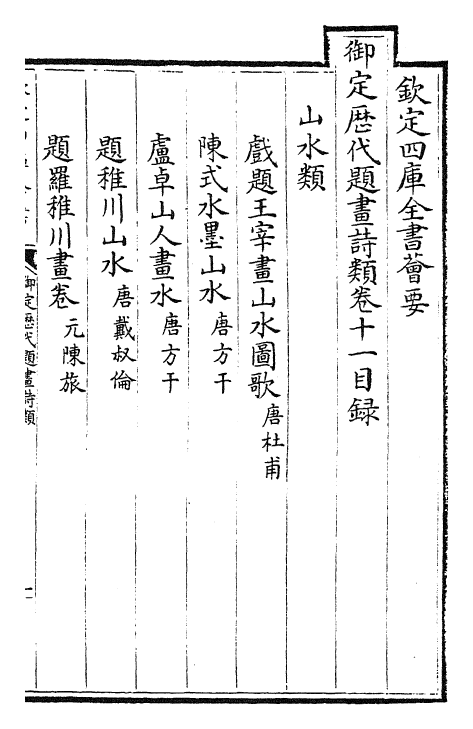 欽定四庫全書薈要
御定歴代題畫詩類卷十一目録
山水類
戲題王宰畫山水圖歌 唐杜甫
陳式水墨山水 唐方干
盧卓山人畫水 唐方干
題稚川山水 唐戴叔倫
題羅稚川畫卷 元陳旅
御定歴代題畫詩類
一